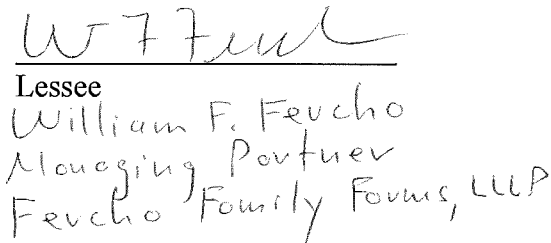 W F Feuch
Lessee
William F. Feucho
Managing Partner
Feucho Family Farms, LLLP